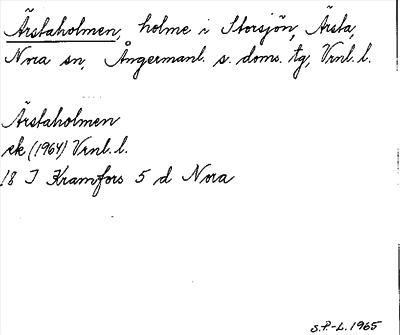 Ärstaholmen, holme i Storsjön, Ärsta,
Nora sn, Ångermanl. s. doms. tg, Vrnl. l.
Ärstaholmen
ek (1964) Vrnl. l.
18 I Kramfors 5 d Nora
S.P.-L. 1965